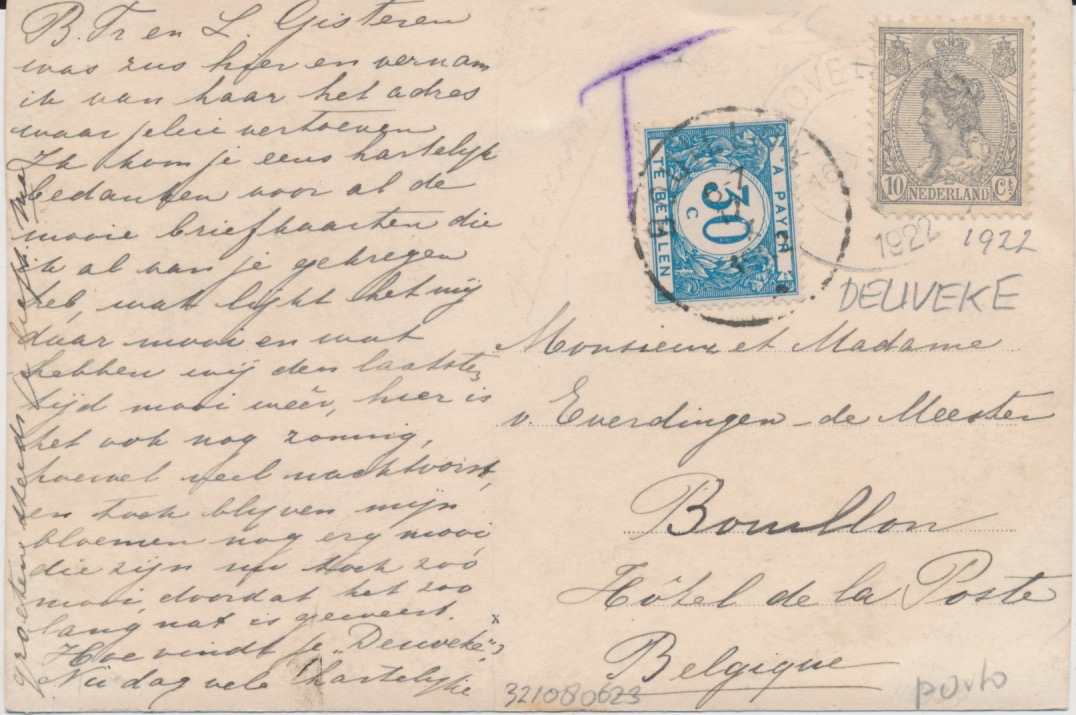 B. Tr en L. Gisteren
was zus hier en vernam
ik van haar het adres
waar jelui vertoeven
Ik kom je eens hartelijk
bedanken voor al de
mooie briefkaarten die
ik al van je gekregen
heb, wat lijkt het mij
daar mooi en wat
hebben wij den laatsten
tijd mooi weêr, hier is
het ook nog zonnig,
hoewel veel nachtvorst,
en toch blijven mijn
bloemen nog erg mooi,
die zijn nu toch zoó
mooi, doordat het zoo
lang nat is geweest.
x
Hoe vindt je "Deuveke"?
Nu dag vele hartelijke
groeten steeds
T
30
C
A PAYER
TE BETALEN
10 CT
NEDERLAND
1922
1922
DEUVEKE
Monsieur et Madame
v. Everdingen-de Meester
Bouillon
Hôtel de la Poste
Belgique
321080623
porto